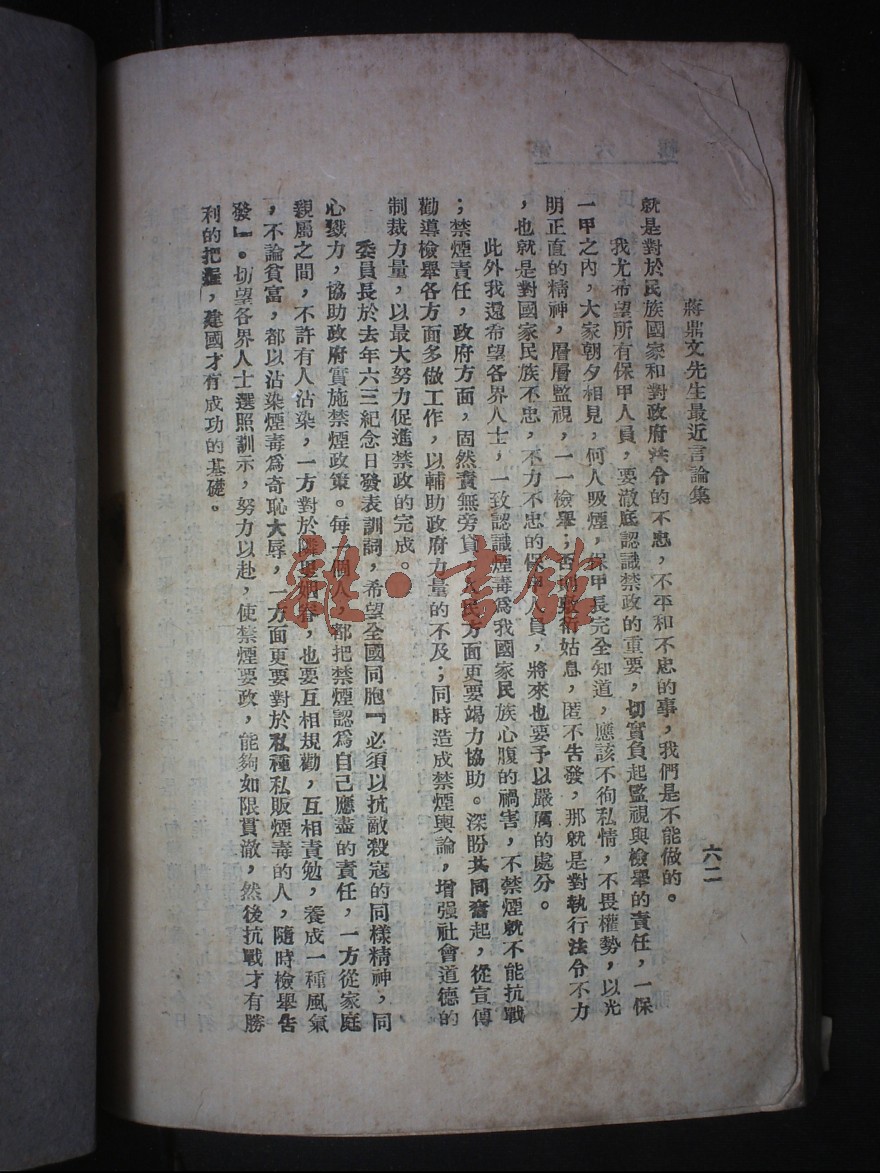 蔣鼎文先生最近言論集
六二
就是對於民族國家和對政府法令的不忠，不平和不忠的事，我們是不能做的。
我尤希望所有保甲人員，要澈底認識禁政的重要，切實負起監視與檢舉的責任，一保
一甲之內，大家朝夕相見，何人吸煙，保甲長完全知道，應該不徇私情，不畏權勢，以光
明正直的精神，層層監視，一一檢舉；否則敷衍姑息，匿不告發，那就是對執行法令不力
，也就是對國家民族不忠，不力不忠的保甲人員，將來也要予以嚴厲的處分。
此外我還希望各界人士，一致認識煙毒爲我國家民族心腹的禍害，不禁煙就不能抗戰
；禁煙責任，政府方面，固然責無旁貸，人民方面更要竭力協助。深盼共同奮起，從宣傳
勸導檢舉各方面多做工作，以輔助政府力量的不及；同時造成禁煙輿論，增强社會道德的
制裁力量，以最大努力促進禁政的完成。
委員長於去年六三紀念日發表訓詞，希望全國同胞『必須以抗敵殺寇的同樣精神，同
心戮力，協助政府實施禁煙政策。每一個人，都把禁煙認爲自己應盡的責任，一方從家庭
親屬之間，不許有人沾染，一方對於鄰里姻眷，也要互相規勸，互相責勉，養成一種風氣
，不論貧富，都以沾染煙毒爲奇恥大辱，一方面更要對於私種私販煙毒的人，隨時檢舉告
發』。切望各界人士選照訓示，努力以赴，使禁煙要政，能夠如限貫澈，然後抗戰才有勝
利的把握，建國才有成功的基礎。
雜·書館